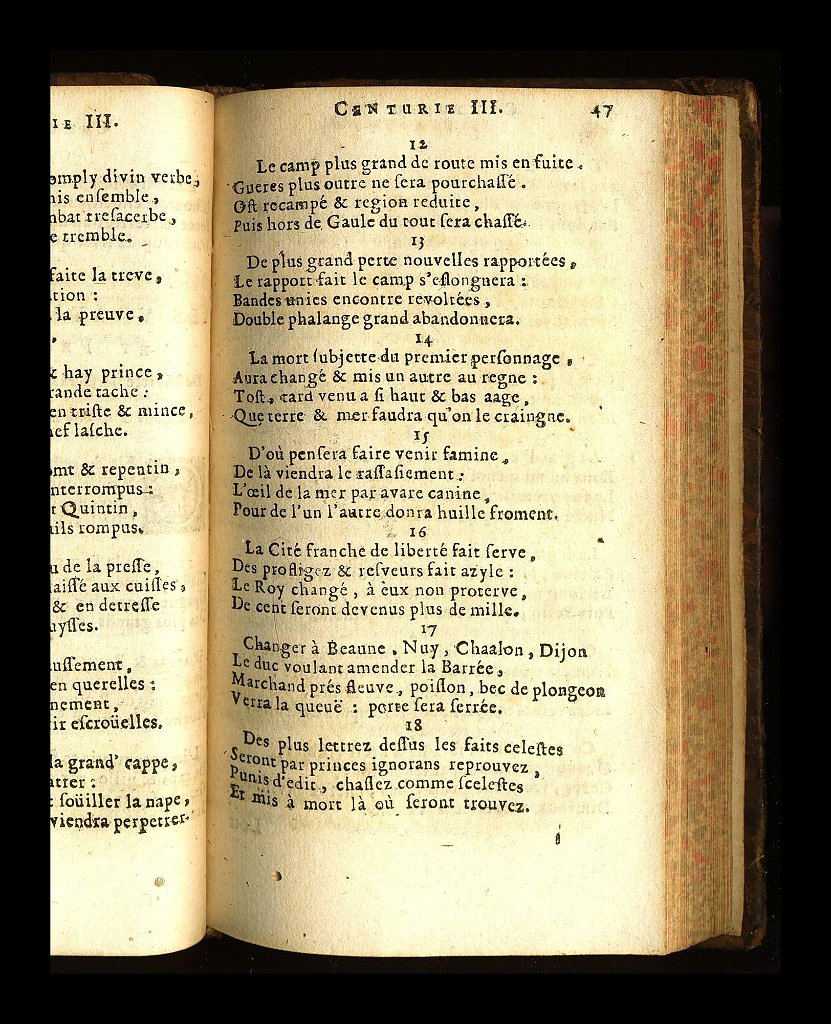 IE III.
omply divin verbe,
ensemble,
tresacerbe,
tremble.
faite la treve,
la preuve.
& hay prince,
tache :
en triste & mince,
lasche.
& repentin,
Quintin,
rompus.
de la presse,
aux cuisses,
& en detresse
en querelles :
escroüelles.
la grand' cappe,
soüiller la nape,
viendra perpetrer.
CENTURIE III. 47
12
Le camp plus grand de route mis en fuite.
Gueres plus outre ne sera pourchassé.
Ost recampé & region reduite,
Puis hors de Gaule du tout sera chassé.
13
De plus grand perte nouvelles rapportées,
Le rapport fait le camp s'eslongnera :
Bandes unies encontre revoltées,
Double phalange grand abandonnera.
14
La mort subjette du premier personnage,
Aura changé & mis un autre au regne :
Tost, tard venu a si haut & bas aage,
Que terre & mer faudra qu'on le craingne.
15
D'où pensera faire venir famine,
De là viendra le rassasiement :
L'œil de la mer par avare canine,
Pour de l'un l'autre donra huille froment.
16
La Cité franche de liberté fait serve,
Des profligez & resveurs fait azyle :
Le Roy changé, à eux non proterve,
De cent seront devenus plus de mille.
17
Changer à Beaune, Nuy, Chaalon, Dijon
Le duc voulant amender la Barrée,
Marchand prés fleuve, poisson, bec de plongeon
Verra la queuë : porte sera serrée.
18
Des plus lettrez dessus les faits celestes
Seront par princes ignorans reprouvez,
Punis d'edit, chassez comme scelestes
Et mis à mort là où seront trouvez.